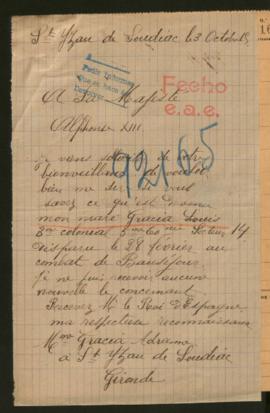 St Yzan de Soudiac le 3 Octobre
Fecho
e.a.e.
A Sa Majesté
Alphonse XIII
12165
Je vous
bienveillance de vouloir
bien me dire si vous
savez ce qu'est devenu
mon mari Gracia Louis
3me colonial 14
disparu le 28 février au
combat de Beauséjour
je ne puis recevoir aucune
nouvelle le concernant
Recevez M le Roi d'Espagne
ma respectueuse reconnaissance
Mme Gracia Adrienne
à St Yzan de Soudiac
Gironde